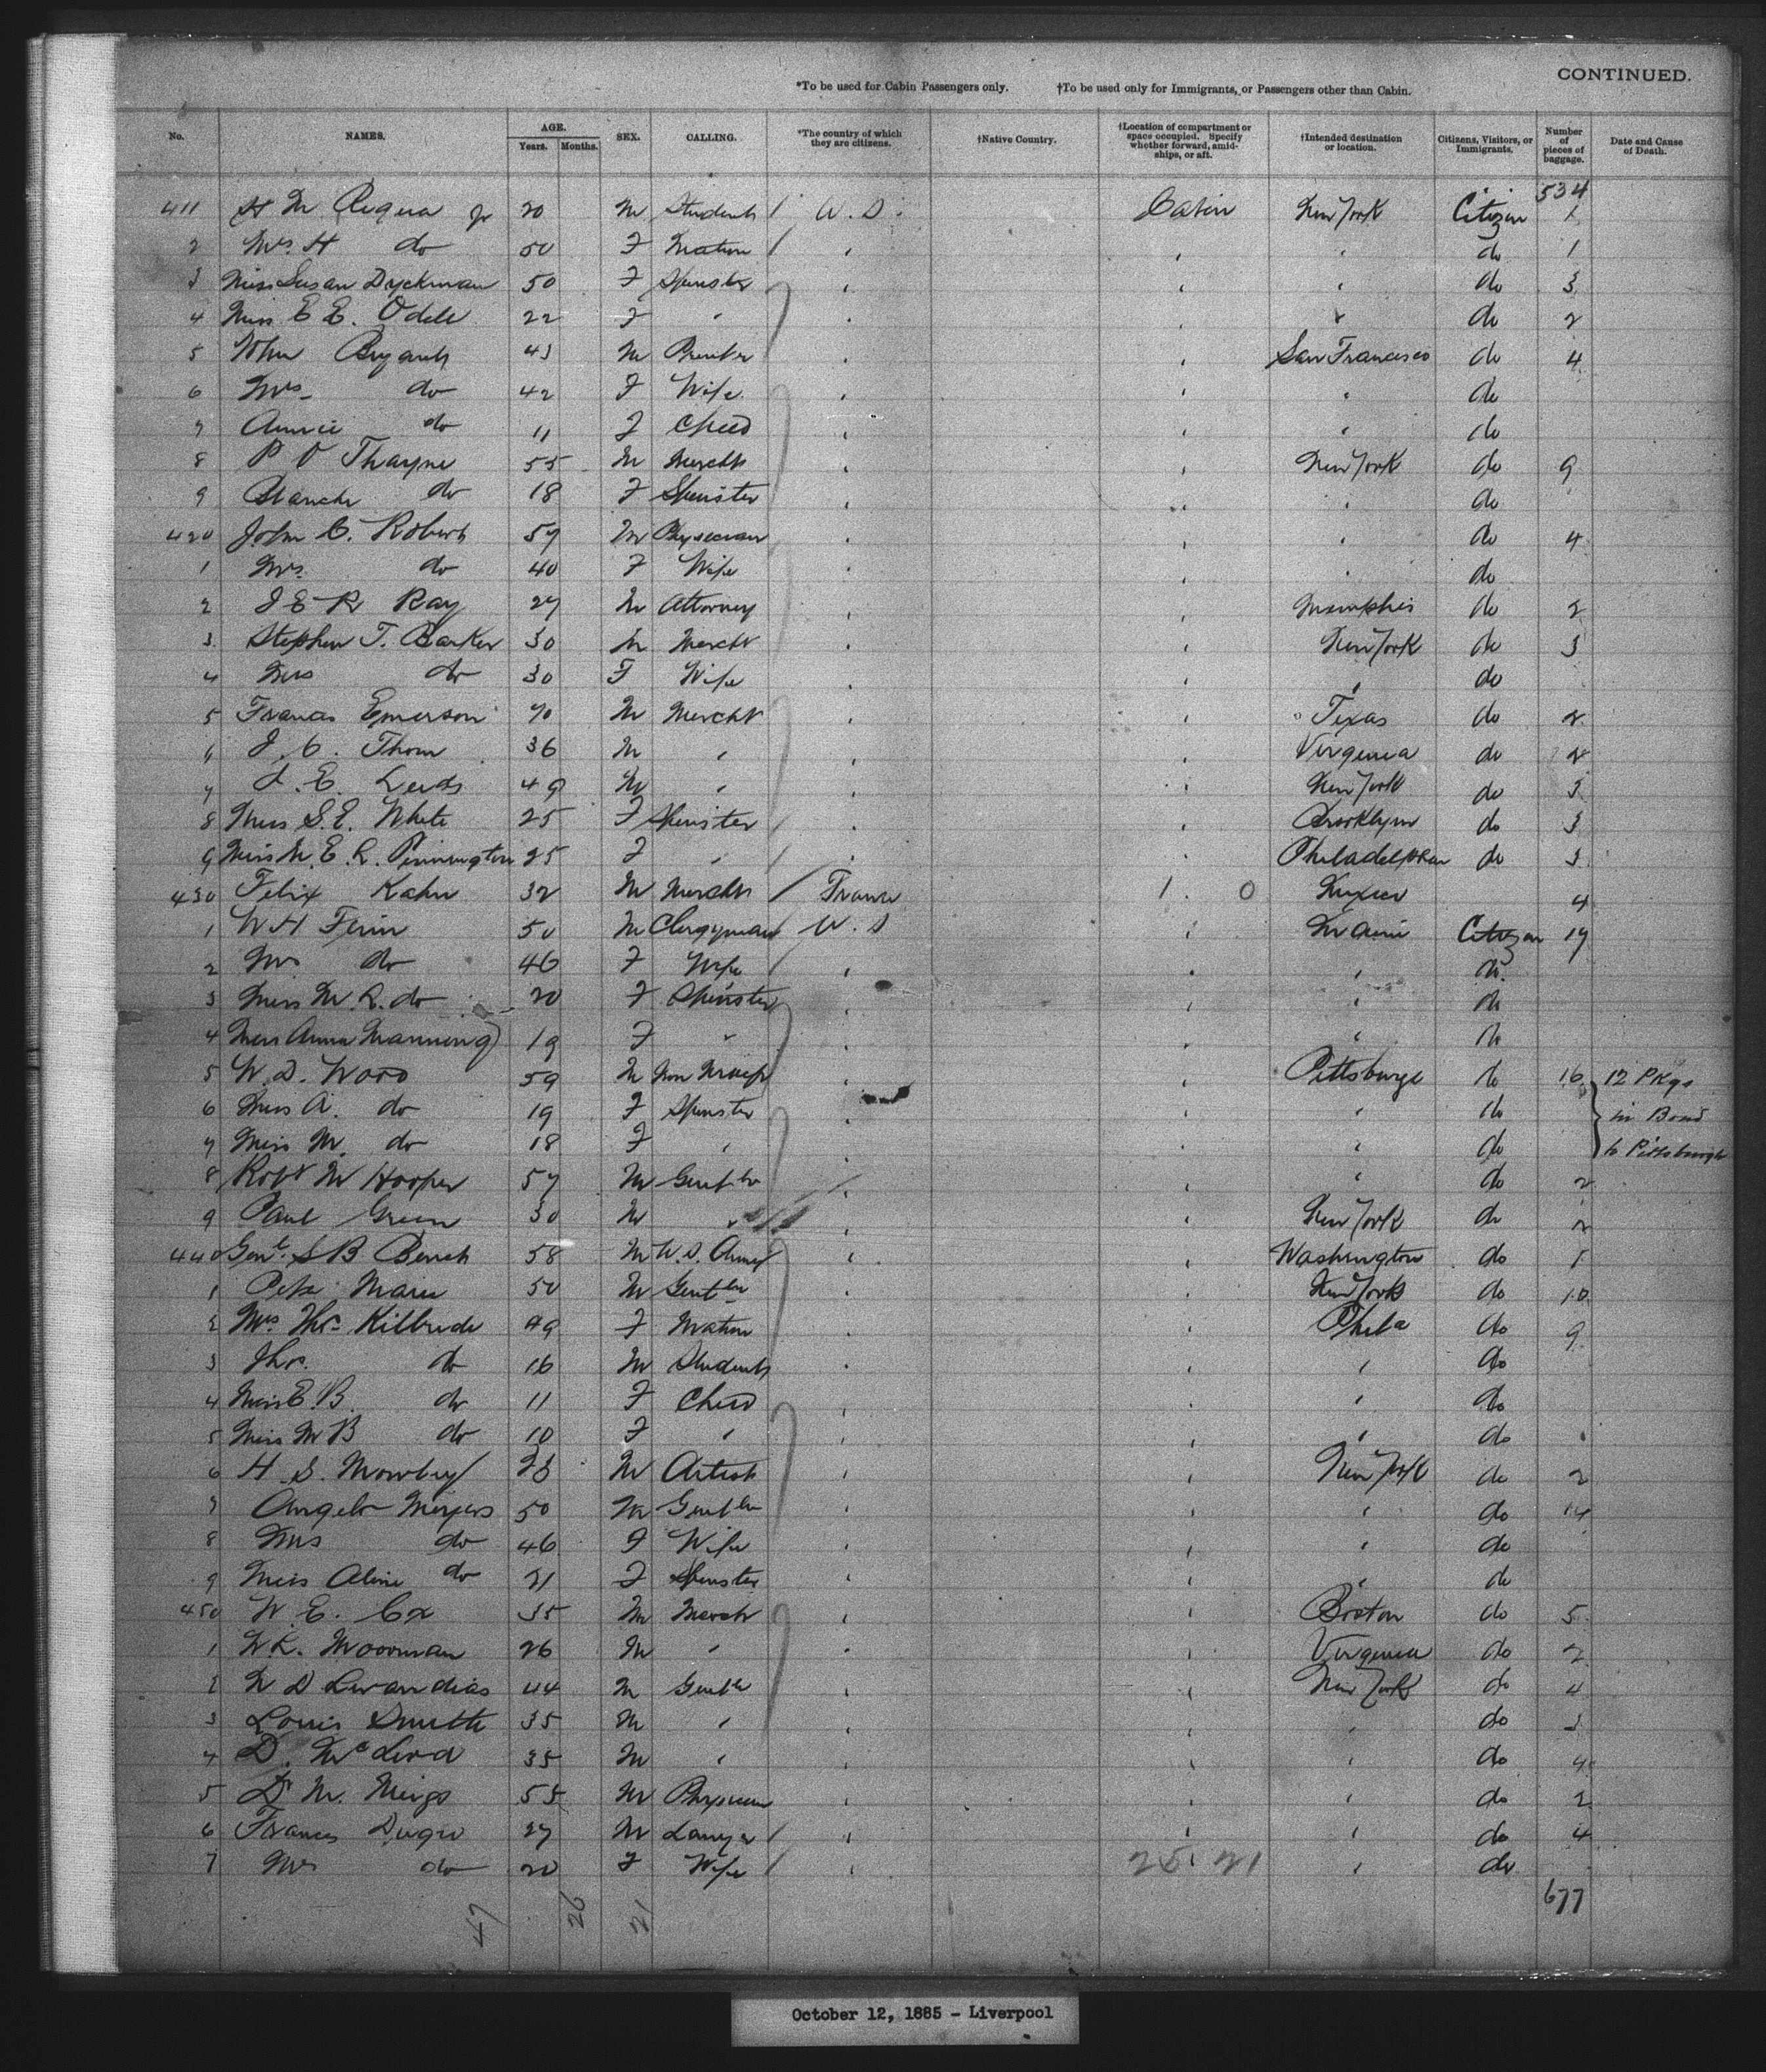 CONTINUED.
*To be used for Cabin Passengers only. †To be used only for Immigrants, or Passengers other than Cabin.
No. NAMES. AGE. Years. Months. SEX. CALLING. *The country of which they are citizens. †Native Country. †Location of compartment or space occupied. Specify whether forward, amidships, or aft. †Intended destination or location. Citizens, Visitors, or Immigrants. Number of pieces of baggage. Date and Cause of Death.
534
411 H M Requa Jr 20 M Student U.S. Cabin New York Citizen 1
2 Mrs H do 50 F Matron " " " do 1
3 Miss Susan Dyckman 50 F Spinster " " " do 3
4 Miss E E. Odell 22 F " " " " do 2
5 John Bryant 43 M " " San Francisco do 4
6 Mrs do 42 F Wife " " " do
7 Annie do 11 F Child " " " do
8 P V Thayne 55 M Mercht " " New York do 9
9 Blanche do 18 F Spinster " " " do
420 John C. Roberts 57 M Physician " " " do 4
1 Mrs. do 40 F Wife " " " do
2 J E R Ray 27 M Attorney " " Memphis do 2
3 Stephen T. Barker 30 M Mercht " " New York do 3
4 Mrs do 30 F Wife " " " do
5 Francis Emerson 70 M Mercht " " Texas do 2
6 J. C. Thom 36 M " " " Virginia do 2
7 J. E. Leeds 49 M " " " New York do 3
8 Miss S. E. White 25 F Spinster " " Brooklyn do 3
9 Miss M. E. R. Pennington 25 F " " " Philadelphia do 3
430 Felix Kahn 32 M Mercht France 1 0 4
1 W H Fenn 50 M Clergyman U.S " Maine Citizen 17
2 Mrs do 46 F Wife " " " do
3 Miss M. R. do 20 F Spinster " " " do
4 Miss Anna Manning 19 F " " " " do
5 W. D. Wood 59 M " " Pittsburge do 16 12 Pkgs
6 Miss A. do 19 F Spinster " " " do in Bond
7 Miss M. do 18 F " " " " do to Pittsburgh
8 Robt M Hooper 57 M Gentln " " " do 2
9 Paul Green 30 M " " " New York do 2
440 Genl. S B 58 M U.S. Army " " Washington do 1
1 Peter Marie 50 M Gentln " " New York do 10
2 Mrs Thos Kilbride 49 F Matron " " Phila do 9
3 Thos. do 16 M Student " " " do
4 Miss E. B. do 11 F Child " " " do
5 Miss M B do 10 F " " " " do
6 H. S. Mowbray 28 M Artist " " New York do 2
7 Angelo Meyers 50 M Gentln " " " do 14
8 Mrs do 46 F Wife " " " do
9 Miss Aline do 21 F Spinster " " " do
450 W. E. Cox 35 M Mercht " " Boston do 5
1 W K. Moorman 26 M " " " Virginia do 2
2 44 M Gentln " " New York do 4
3 Louis 35 M " " " " do 3
4 D. McLeod 35 M " " " " do 4
5 Dr M. Meigs 55 M Physician " " " do 2
6 Francis Dugro 27 M Lawyer " " " do 4
7 Mrs do 20 F Wife " 25 21 " do
677
47 26 21
October 12, 1885 - Liverpool